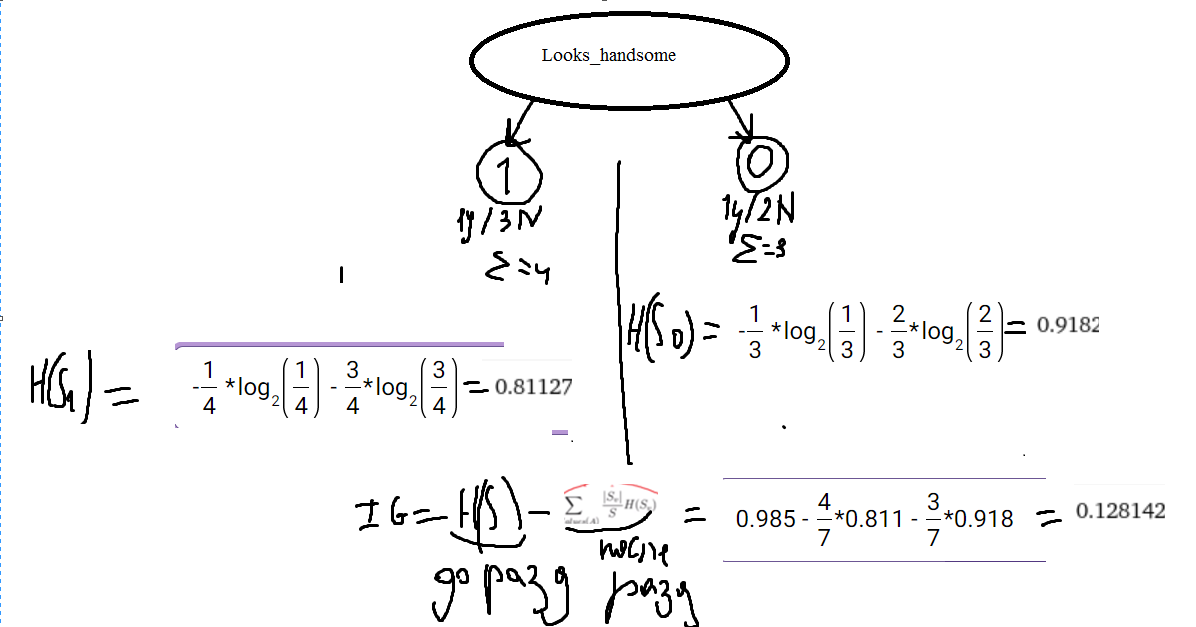 Looks_handsome
1 0
1y/3N 1y/2N
Σ=4 Σ=3
H(S₀) = -1/3 *log₂(1/3) - 2/3*log₂(2/3) = 0.9182
H(S₁) = -1/4 *log₂(1/4) - 3/4*log₂(3/4) = 0.81127
IG = H(S) - Σ |Sᵥ|/S H(Sᵥ) = 0.985 - 4/7*0.811 - 3/7*0.918 = 0.128142
после
до разд разд